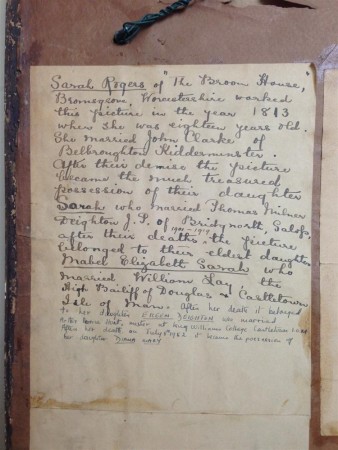 Sarah Rogers of "The Broom House,"
Bromsgrove, Worcestershire worked
this picture in the year 1813
when she was eighteen years old.
She married John Clarke of
Belbroughton Kidderminster.
After their demise the picture
became the much treasured
possession of their daughter
Sarah who married Thomas Milner
Deighton J.P. of Bridgnorth, Salop.
after their deaths the picture
belonged to their eldest daughter
Mabel Elizabeth Sarah who
married William Lay the
High Bailiff of Douglas & Castletown
Isle of Man. After her death it belonged
to her daughter DEIGHTON who married
master at King William's College Castletown I.O.M
After her death on July 1962 it became the possession of
her daughter DIANA MARY